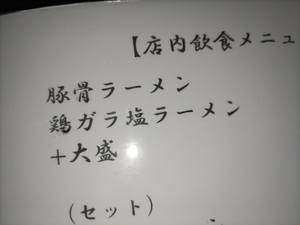 【店内飲食メニュ
豚骨ラーメン
鶏ガラ塩ラーメン
+大盛
(セット)